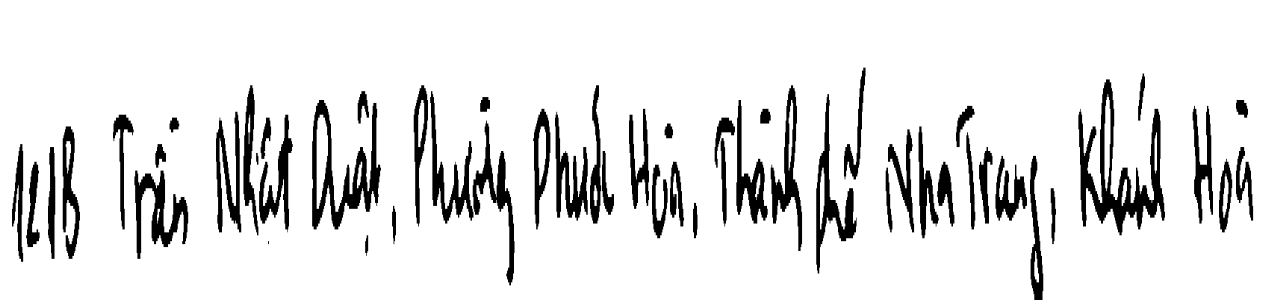 121B Trần Nhật Duật, Phường Phước Hòa, Thành phố Nha Trang, Khánh Hoà